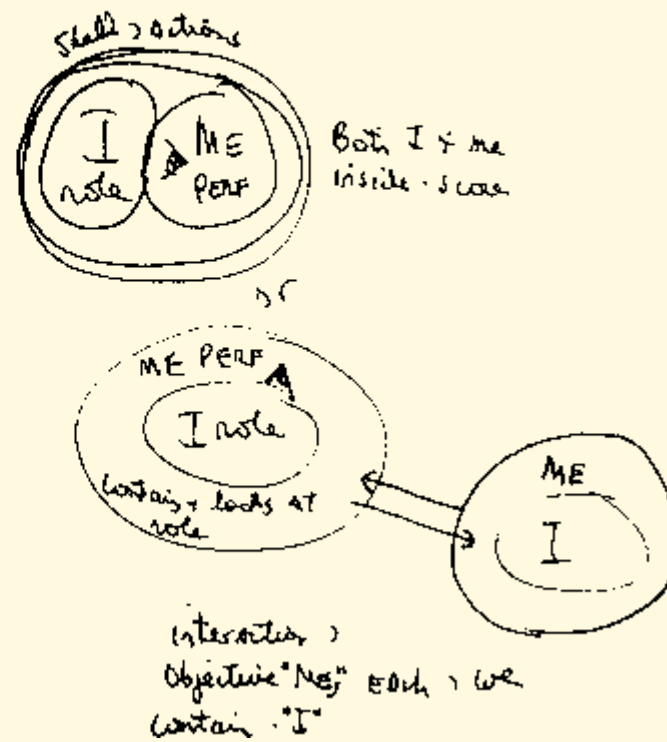 Shell > actions
I
role
ME
PERF
Both I + me
inside - score
or
ME PERF
I role
contain + looks at
role
ME
I
interaction >
Objective "ME," each > we
contain "I"